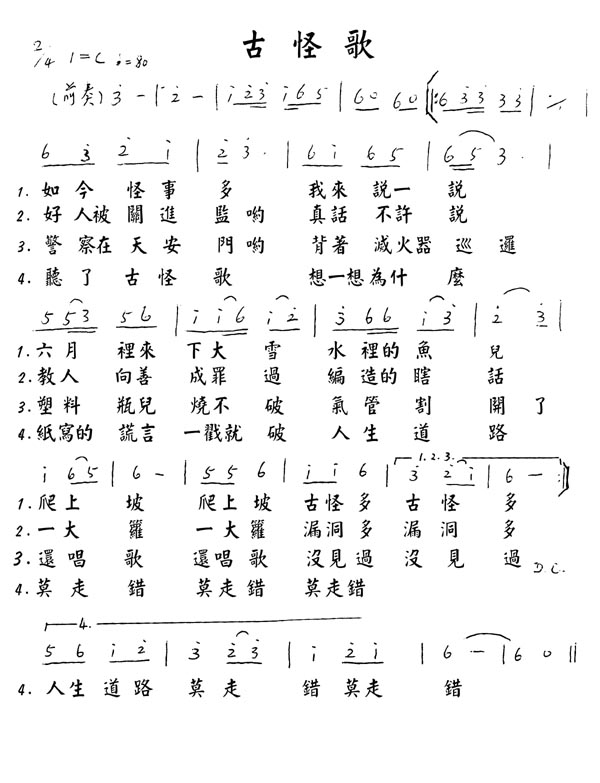 古怪歌
2/4 1=C ♩=80
(前奏) 3̇ - | 2̇ - | i 2̇ 3̇ i 6 5 | 6 0 6 0 |: 6 3̇ 3̇ 3̇ 3̇ | ٪ |
6 3̇ 2̇ i | 2̇ 3̇ · | 6 i 6 5 | 6 5 3 · |
1. 如今 怪事 多 我來 說一 說
2. 好人被 關進 監喲 真話 不許 說
3. 警察在 天安 門喲 背著 滅火器 巡邏
4. 聽了 古怪 歌 想一想 為什 麼
5 5 3 5 6 | i i 6 i 2̇ | 3̇ 6 6 i 3̇ | 2̇ 3̇ |
1. 六月 裡來 下大 雪 水裡的 魚 兒
2. 教人 向善 成罪 過 編造的 瞎 話
3. 塑料 瓶兒 燒不 破 氣管 割 開了
4. 紙寫的 謊言 一戳就 破 人生 道 路
1.2.3.
i 6 5 | 6 - | 5 5 6 | i i 6 | 3̇ 2̇ i | 6 - :|
1. 爬上 坡 爬上坡 古怪多 古怪 多
2. 一大 籮 一大籮 漏洞多 漏洞 多
3. 還唱 歌 還唱歌 沒見過 沒見 過 D.C.
4. 莫走 錯 莫走錯 莫走錯
4.
5 6 i 2̇ | 3̇ 2̇ 3̇ | i 2̇ i | 6 - | 6 0 ||
4. 人生 道路 莫走 錯 莫走 錯